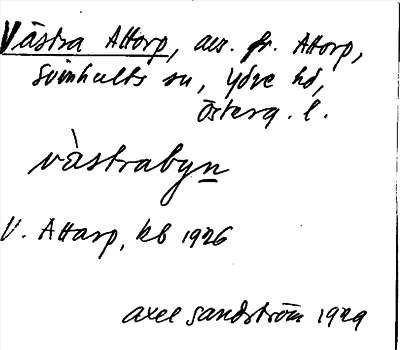 Västra Attorp, avs. fr. Attorp,
Svinhults sn, Ydre hd,
Österg. l.
vàstrabyn
V. Attarp, kb 1926
Axel Sandström 1929